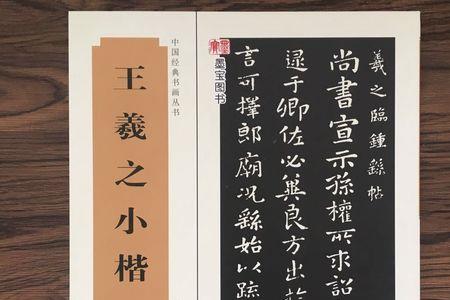 中国经典书画丛书
王羲之小楷
墨宝图书
羲之臨鍾繇帖
尚書宣示孫權所求詔
逮于卿佐必冀良方出於
言可擇郎廟況繇始以疏